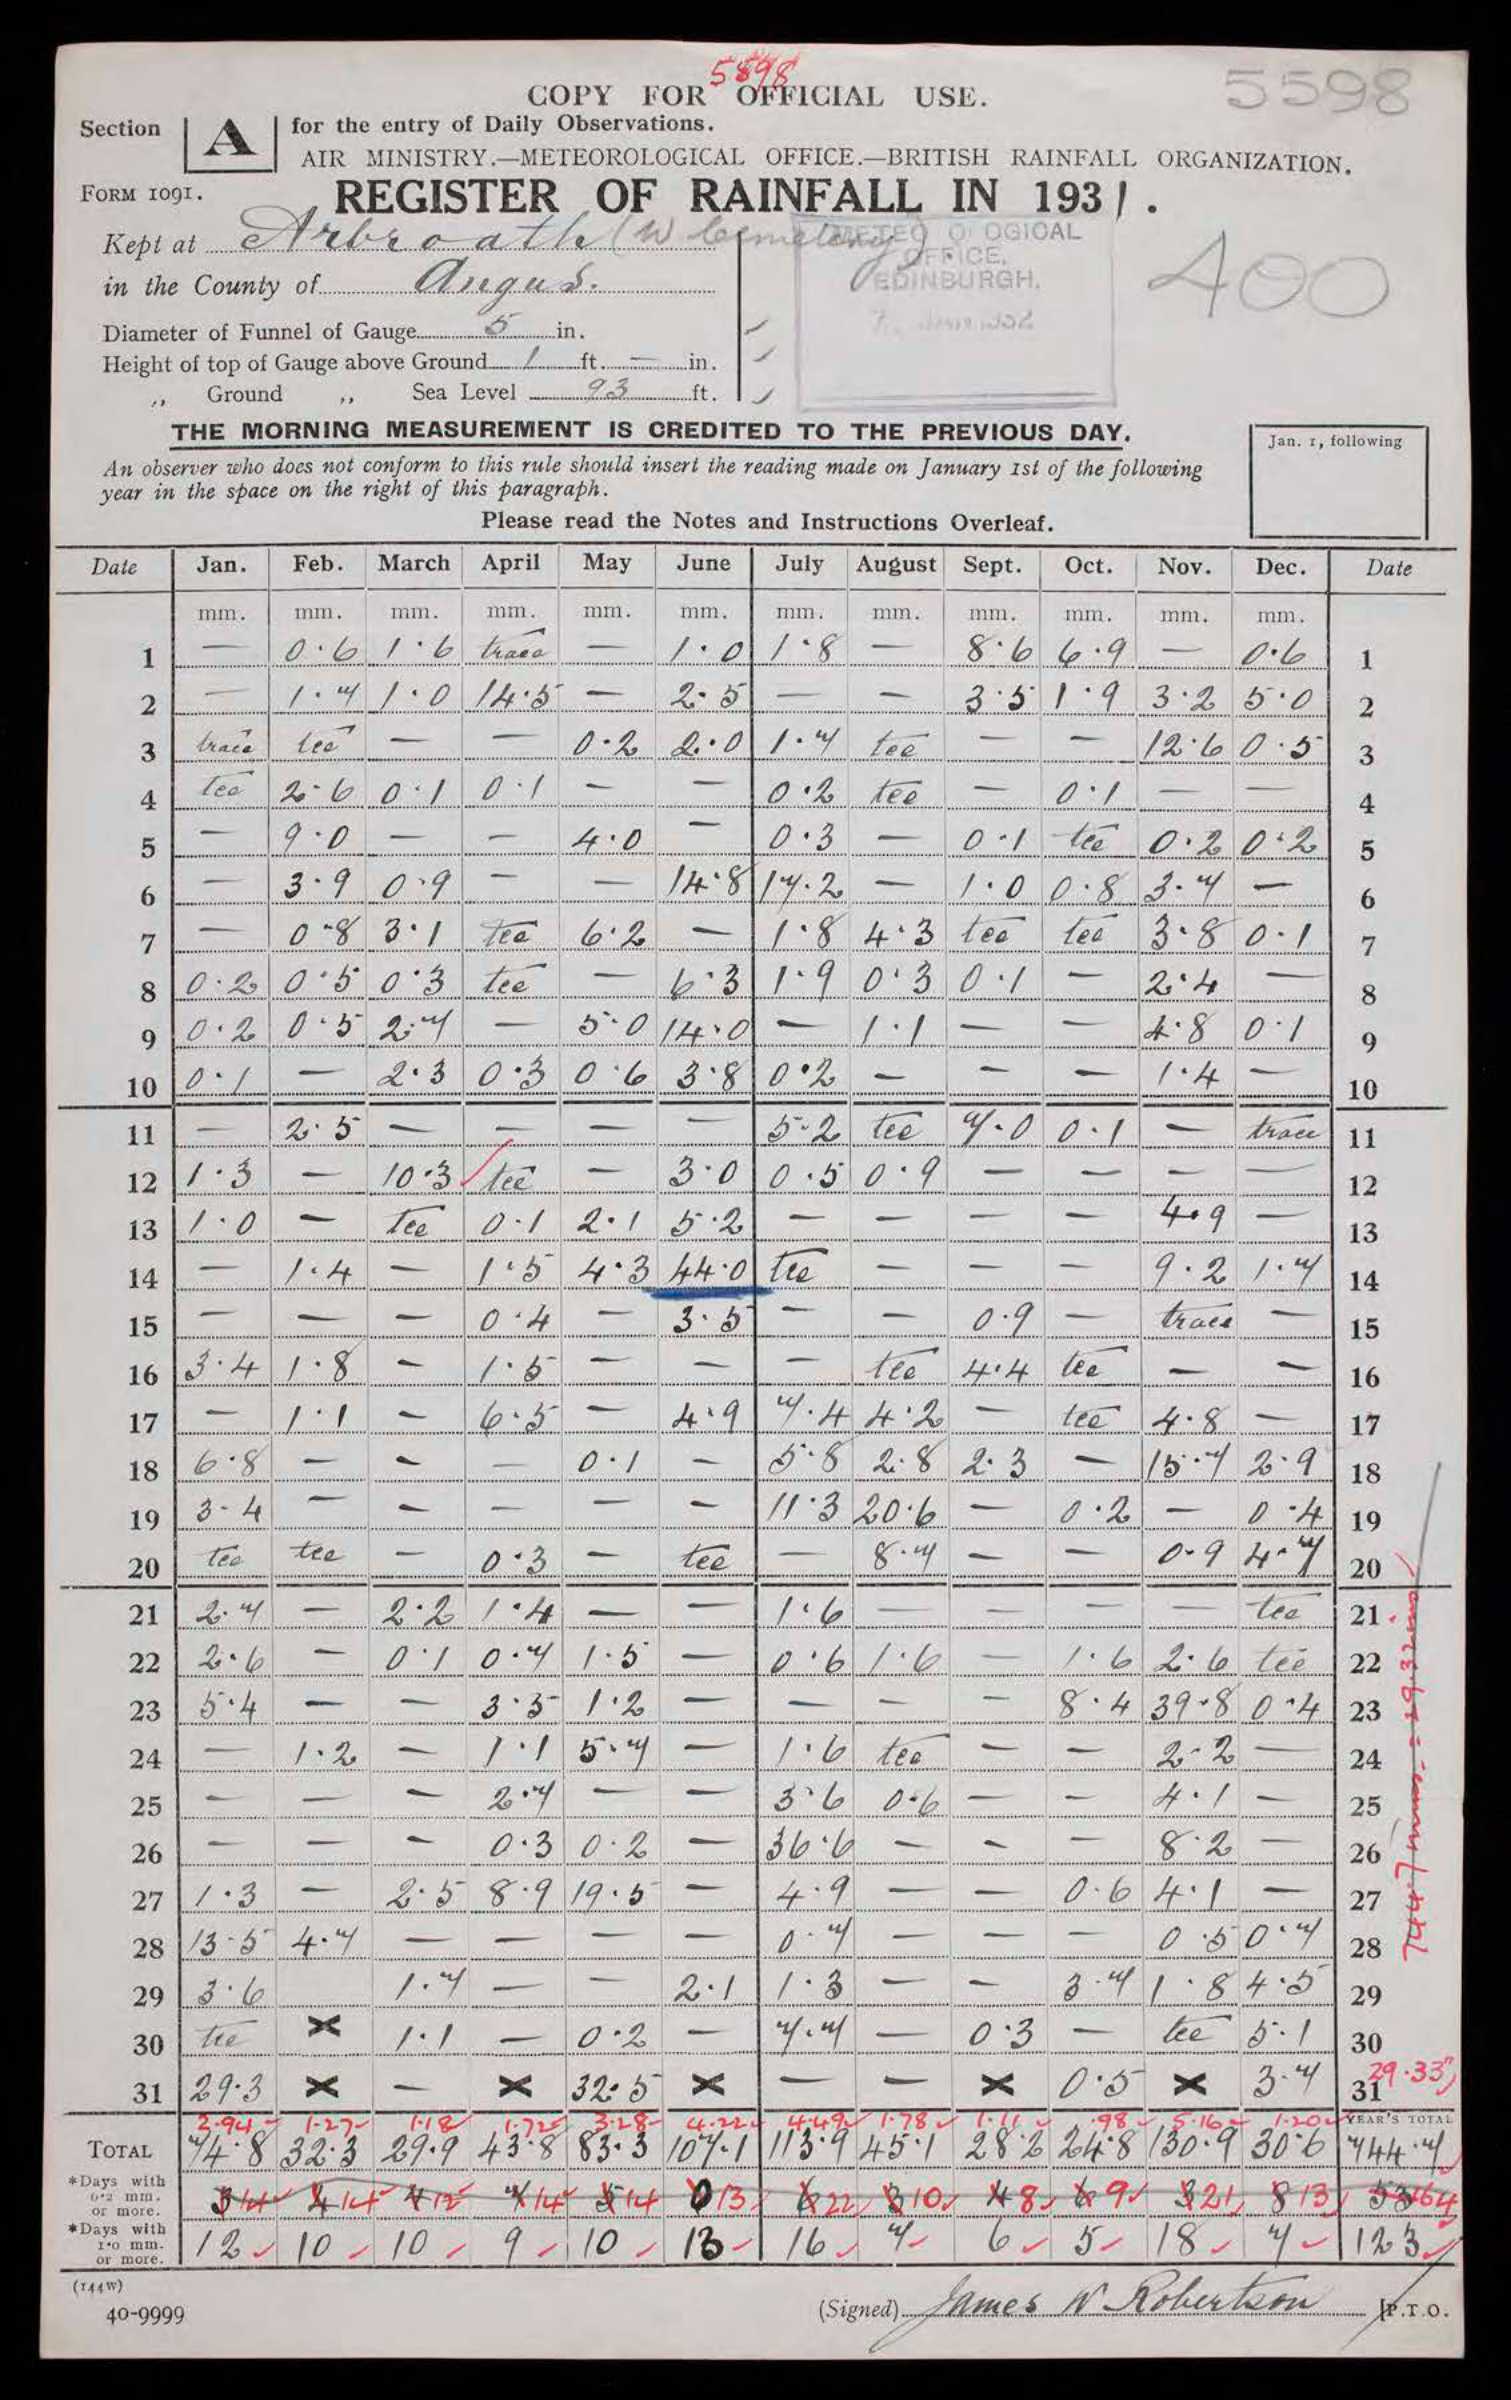 5598
5598
COPY FOR OFFICIAL USE.
Section A for the entry of Daily Observations.
AIR MINISTRY.—METEOROLOGICAL OFFICE.—BRITISH RAINFALL ORGANIZATION.
FORM 1091. REGISTER OF RAINFALL IN 1931.
Kept at Arbroath (W Cemetery)
in the County of Angus.
METEOROLOGICAL
OFFICE,
EDINBURGH.
400
Diameter of Funnel of Gauge 5 in.
Height of top of Gauge above Ground 1 ft. — in.
,, Ground ,, Sea Level 93 ft.
THE MORNING MEASUREMENT IS CREDITED TO THE PREVIOUS DAY.
An observer who does not conform to this rule should insert the reading made on January 1st of the following
year in the space on the right of this paragraph.
Jan. 1, following
Please read the Notes and Instructions Overleaf.
Date Jan. Feb. March April May June July August Sept. Oct. Nov. Dec. Date
mm. mm. mm. mm. mm. mm. mm. mm. mm. mm. mm. mm.
1 — 0.6 1.6 trace — 1.0 1.8 — 8.6 6.9 — 0.6 1
2 — 1.7 1.0 14.5 — 2.5 — — 3.5 1.9 3.2 5.0 2
3 trace tce — — 0.2 2.0 1.7 tce — — 12.6 0.5 3
4 tce 2.6 0.1 0.1 — — 0.2 tce — 0.1 — — 4
5 — 9.0 — — 4.0 — 0.3 — 0.1 tce 0.2 0.2 5
6 — 3.9 0.9 — — 14.8 17.2 — 1.0 0.8 3.7 — 6
7 — 0.8 3.1 tce 6.2 — 1.8 4.3 tce tce 3.8 0.1 7
8 0.2 0.5 0.3 tce — 6.3 1.9 0.3 0.1 — 2.4 — 8
9 0.2 0.5 2.7 — 5.0 14.0 — 1.1 — — 4.8 0.1 9
10 0.1 — 2.3 0.3 0.6 3.8 0.2 — — — 1.4 — 10
11 — 2.5 — — — — 5.2 tce 7.0 0.1 — trace 11
12 1.3 — 10.3 tce — 3.0 0.5 0.9 — — — — 12
13 1.0 — tce 0.1 2.1 5.2 — — — — 4.9 — 13
14 — 1.4 — 1.5 4.3 44.0 tce — — — 9.2 1.7 14
15 — — — 0.4 — 3.5 — — 0.9 — trace — 15
16 3.4 1.8 — 1.5 — — — tce 4.4 tce — — 16
17 — 1.1 — 6.5 — 4.9 7.4 4.2 — tce 4.8 — 17
18 6.8 — — — 0.1 — 5.8 2.8 2.3 — 15.7 2.9 18
19 3.4 — — — — — 11.3 20.6 — 0.2 — 0.4 19
20 tce tce — 0.3 — tce — 8.7 — — 0.9 4.7 20
21 2.7 — 2.2 1.4 — — 1.6 — — — — tce 21
22 2.6 — 0.1 0.7 1.5 — 0.6 1.6 — 1.6 2.6 tce 22
23 5.4 — — 3.5 1.2 — — — — 8.4 39.8 0.4 23
24 — 1.2 — 1.1 5.7 — 1.6 tce — — 2.2 — 24
25 — — — 2.7 — — 3.6 0.6 — — 4.1 — 25
26 — — — 0.3 0.2 — 36.6 — — — 8.2 — 26
27 1.3 — 2.5 8.9 19.5 — 4.9 — — 0.6 4.1 — 27
28 13.5 4.7 — — — — 0.7 — — — 0.5 0.7 28
29 3.6 1.7 — — 2.1 1.3 — — 3.7 1.8 4.5 29
30 tce × 1.1 — 0.2 — 7.7 — 0.3 — tce 5.1 30
31 29.3 × — × 32.5 × — — × 0.5 × 3.7 31
744.7 mm. = 29.32 ins
29.33"
2.94 1.27 1.18 1.72 3.28 4.22 4.49 1.78 1.11 .98 5.16 1.20 YEAR'S TOTAL
TOTAL 74.8 32.3 29.9 43.8 83.3 107.1 113.9 45.1 28.2 24.8 130.9 30.6 744.7
*Days with
0.2 mm.
or more.
14 14 12 14 14 13 22 10 8 9 21 13 164
*Days with
1.0 mm.
or more.
12 10 10 9 10 13 16 7 6 5 18 7 123
(144W)
40-9999
(Signed) James W Robertson [P.T.O.